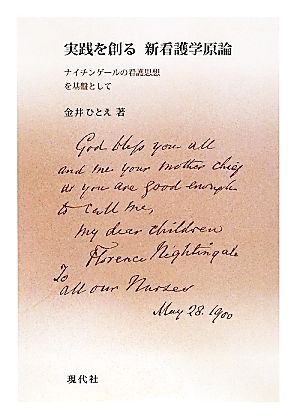 実践を創る 新看護学原論
ナイチンゲールの看護思想
を基盤として
金井ひとえ 著
God bless you all
and me your mother chief
as you are good enough
to call me,
my dear children
Florence Nightingale
To
all our Nurses
May 28. 1900
現代社